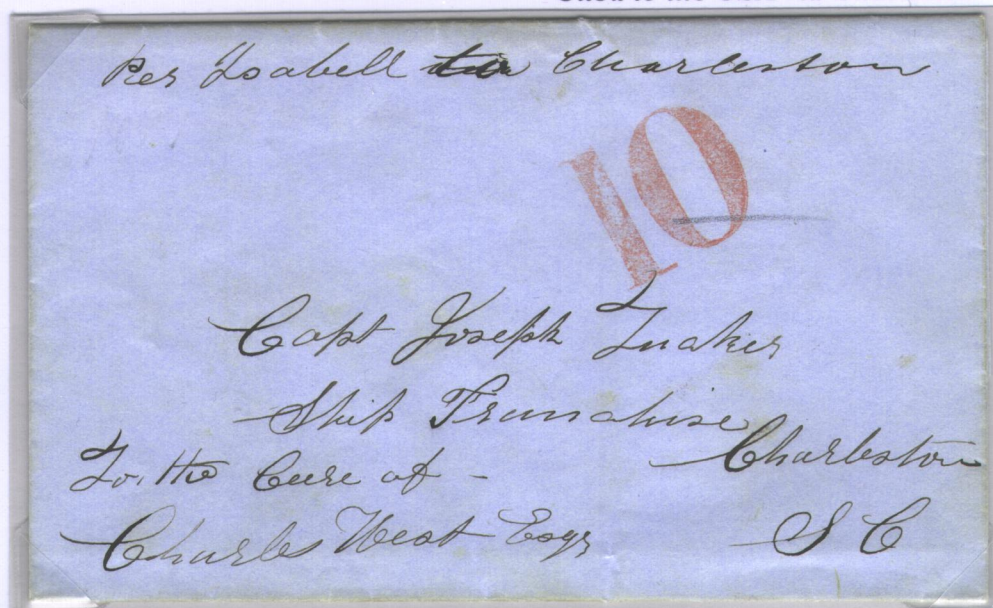 Per Isabell Charleston
10
Capt Joseph Tucker
Ship Franchise
Charleston
S C
To the Care of -
Charles West Esqr